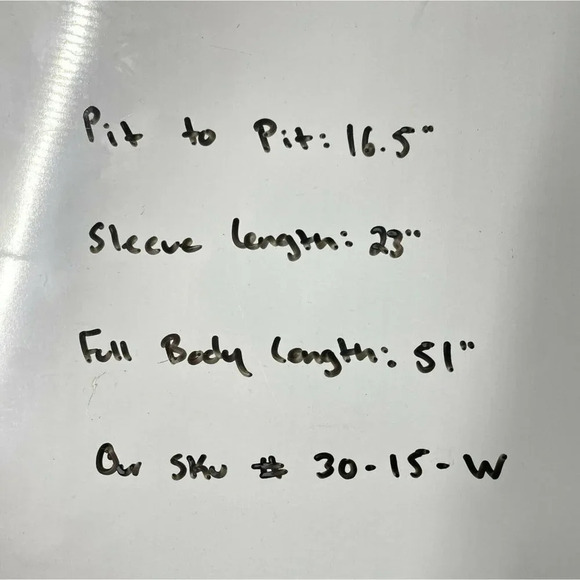 Pit to Pit: 16.5"
Sleeve length: 23"
Full Body Length: 51"
Our SKU # 30-15-W